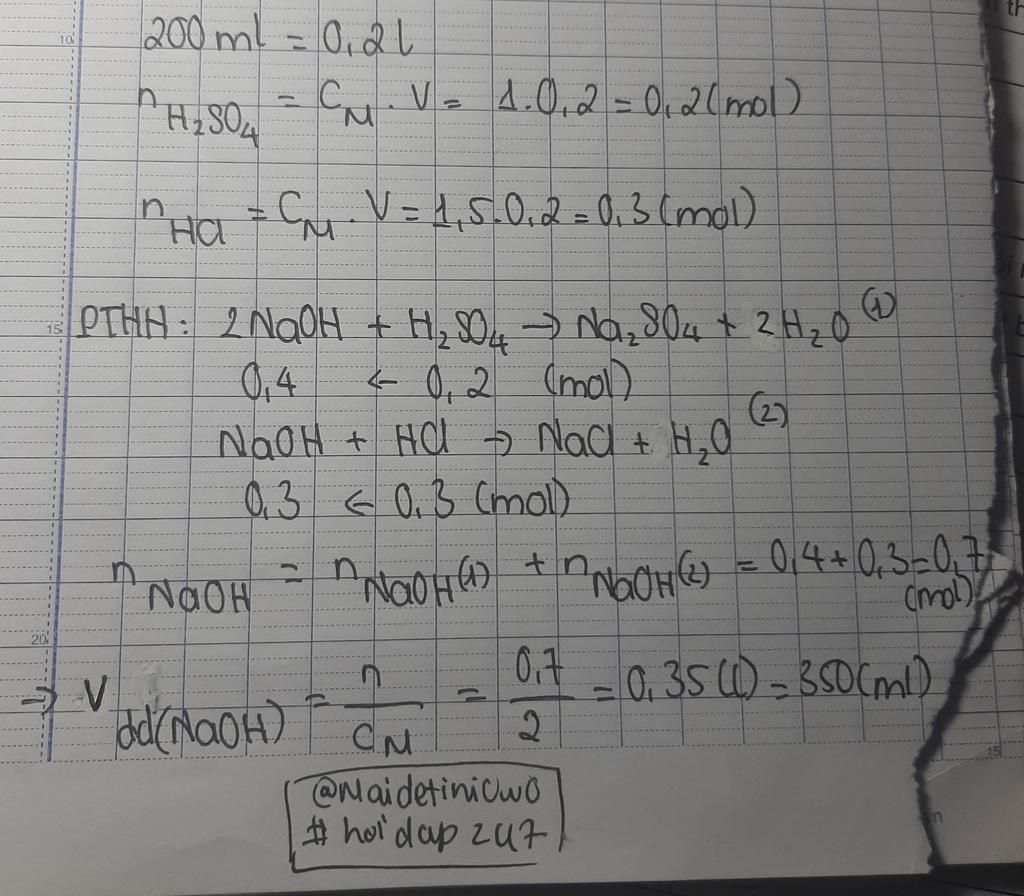 10
200ml = 0,2l
n H₂SO₄ = C_M . V = 1.0,2 = 0,2(mol)
n HCl = C_M . V = 1,5.0,2 = 0,3(mol)
15 PTHH: 2NaOH + H₂SO₄ → Na₂SO₄ + 2H₂O (1)
0,4 ← 0,2 (mol)
NaOH + HCl → NaCl + H₂O (2)
0,3 ← 0,3 (mol)
n NaOH = n NaOH(1) + n NaOH(2) = 0,4+0,3=0,7
(mol)
20
⇒ V dd(NaOH) = n/C_M = 0,7/2 = 0,35(l) = 350(ml)
15
@Maidetiniowo
# hoidap247